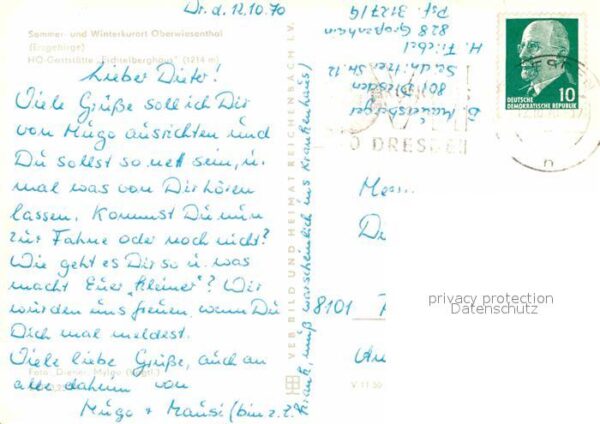 Dr. d. 12.10.70
Sommer- und Winterkurort Oberwiesenthal
(Erzgebirge)
HO-Gaststätte "Fichtelberghaus" (1214 m)
Lieber Dieter!
Viele Grüße soll ich Dir
von Mugo ausrichten und
Du sollst so nett sein, u.
mal was von Dir hören
lassen. Kommst Du nun
zur Fahne oder noch nicht?
Wie geht es Dir so u. was
macht Euer "Kleiner"? Wir
würden uns freuen, wenn Du
Dich mal meldest.
Viele liebe Grüße, auch an
alle daheim von
Mugo + Mausi (bin z.Z.
krank, muß warscheinlich ins Krankenhaus)
Foto: Diener, Mylau (Vogtl.)
VEB BILD UND HEIMAT REICHENBACH I.V.
V 11 50
D.
i
801 Dresden
Str. 12
H.
828 Großenhain
Psf. 3127/G
DEUTSCHE
DEMOKRATISCHE REPUBLIK
10
DRESDEN
n
8101
privacy protection
Datenschutz